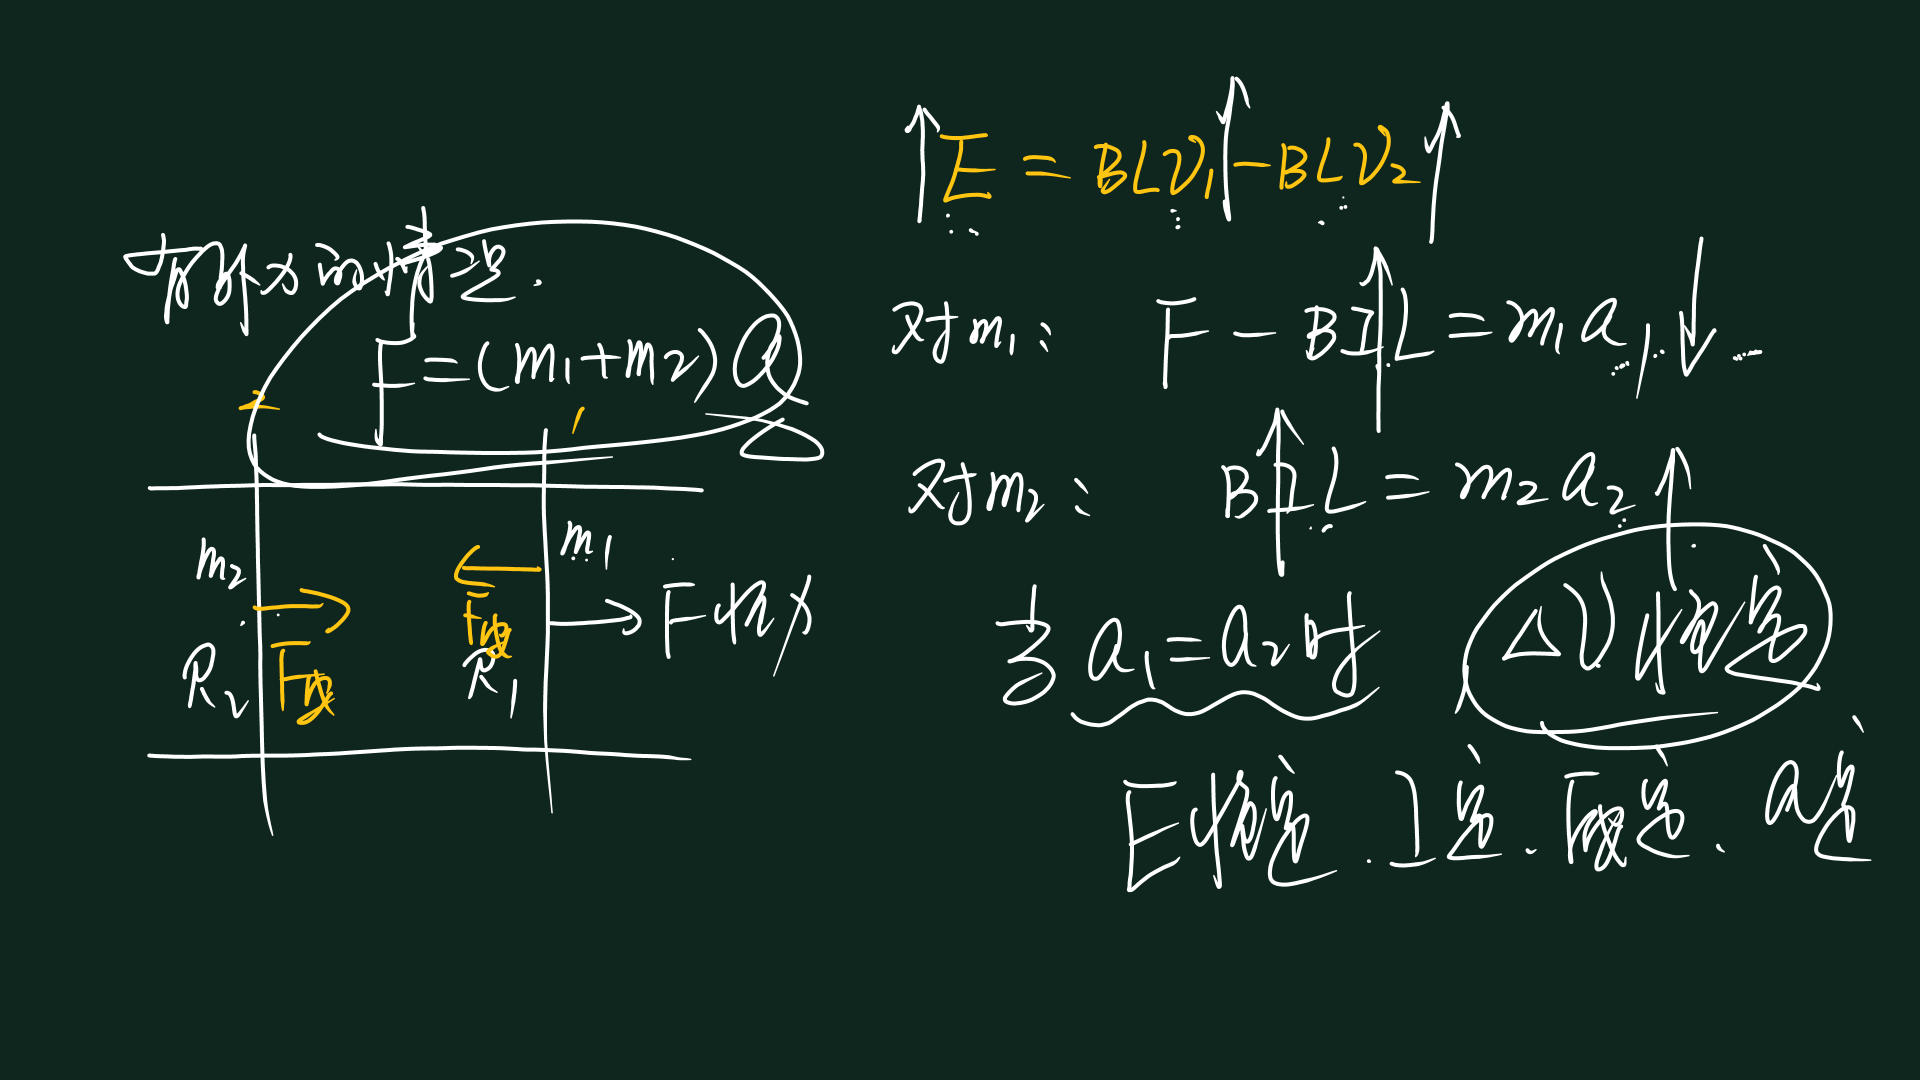 有外力的情况.
F=(m₁+m₂)a
2
1
m₂
m₁
F安
F恒力
R₂
F安
R₁
↑E = BLV₁↑-BLV₂↑
对m₁: F - BI↑L = m₁a₁↓
对m₂: BI↑L = m₂a₂↑
当 a₁=a₂时 ΔV恒定
E恒定. I定. F安定. a定